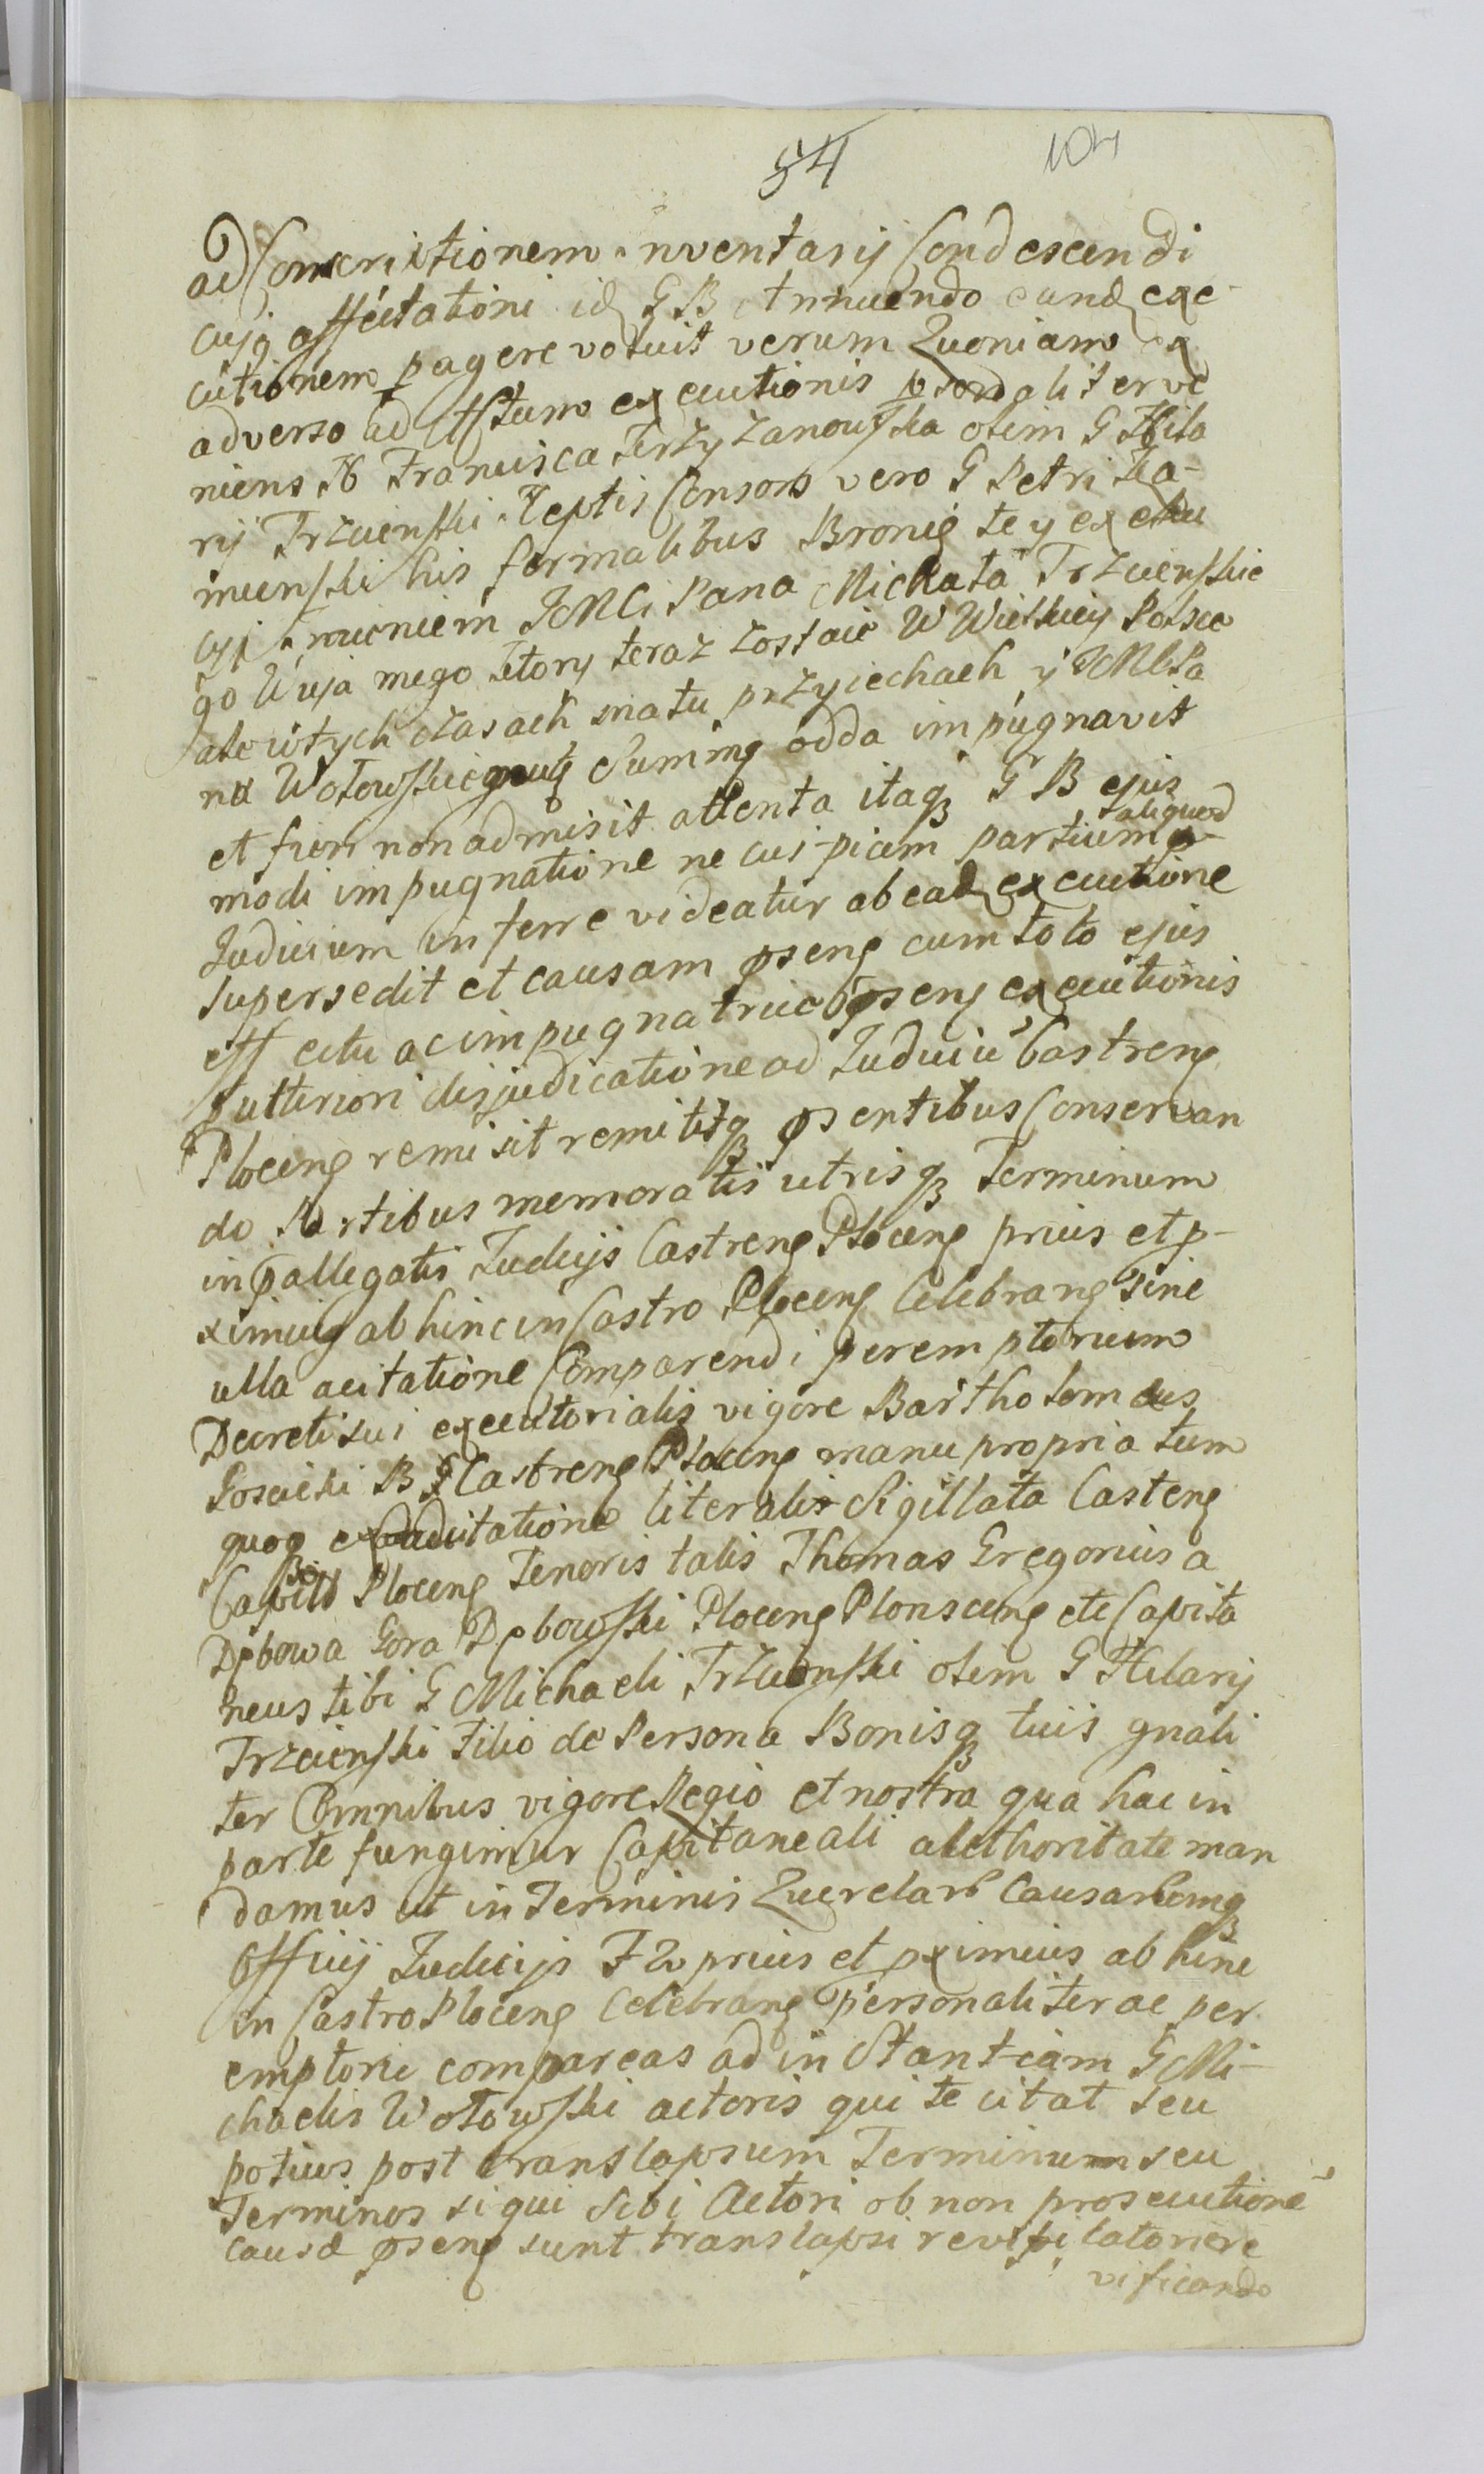 54 104
ad Conscriptionem Inventarij Condescendi
cujq affectationi idq G B Annuendo eandq exe-
cutionem pagere voluit verum Quoniam ex
adverso ad Actum executionis psonaliter ve
niens N Francisca Jerzyzanowska olim G Hila
rij Trzcienski Neptis Consors vero G Petri
his formalibus Bronię tey exeku
cyi Imieniem JMCi Pana Michała Trzcienskie
go Wuja mego ktory teraz zostaie W Wielkiey Polsce
ale wtych czasach przyiechach y JMCPa
na Wołowskiego Summę odda impugnavit
et fieri non admisit attenta itaq G B ejus
modi impugnatione ne cuipiam partium aliquod p-
Judicium inferre videatur ab eadq executione
supersedit et causam pseng cum toto ejus
effectu ac impugnatricis pseng executionis
pro ulteriori disjudicatione ad Judiciũ Castreng
Ploceng remisit remittitq psentibus Conservan
do Partibus memoratis utrisq Terminum
in pallegatis Judicijs Castreng Ploceng prius et p-
ximius abhinc in Castro Ploceng Celebrang sine
ulla acitatione Comparendi peremptorium
Decreti sui executorialis vigore Bartholomaeus
Gosaicki B G Castreng Ploceng manu propria tum
quoq ex adcitatione literalis Sigillata Casteng
Capit Ploceng Tenoris talis Thomas Gregorius a
Dębowa Gora Dębowski Ploceng Plonsceng etc Capita
neus tibi G Michaeli Trzcienski olim G Hilarij
Trzcienski Filio de Persona Bonisq tuis gnali
ter Omnibus vigore Regio et nostra qua hac in
parte fungimur Capitaneali authoritate man
damus ut in Terminis Querelarũ Causarumq
Officij Judicijs F2 prius et pximius abhinc
in Castro Ploceng Celebrang Personaliter ac per
emptorie compareas ad inStantiam G Mi-
chaelis Wołowski actoris qui te citat seu
potius post translapsum Terminum seu
Terminos si qui Sibi Actori ob non prosecutionẽ
causae pseng sunt translapsi
vificando